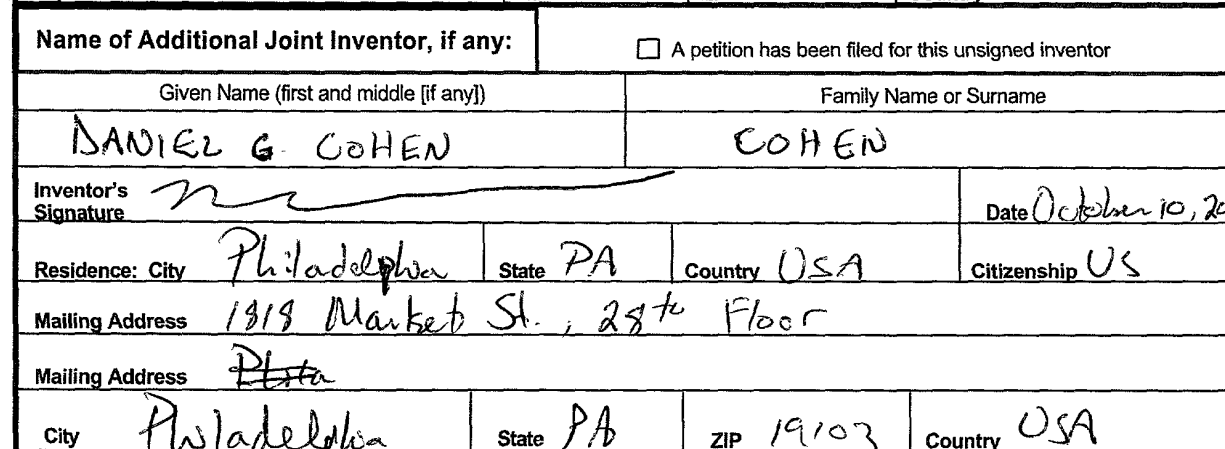 Name of Additional Joint Inventor, if any: ☐ A petition has been filed for this unsigned inventor
Given Name (first and middle [if any]) Family Name or Surname
DANIEL G. COHEN COHEN
Inventor's
Signature Date October 10, 20
Residence: City Philadelphia State PA Country USA Citizenship US
Mailing Address 1818 Market St., 28th Floor
Mailing Address
City Philadelphia State PA ZIP 19103 Country USA